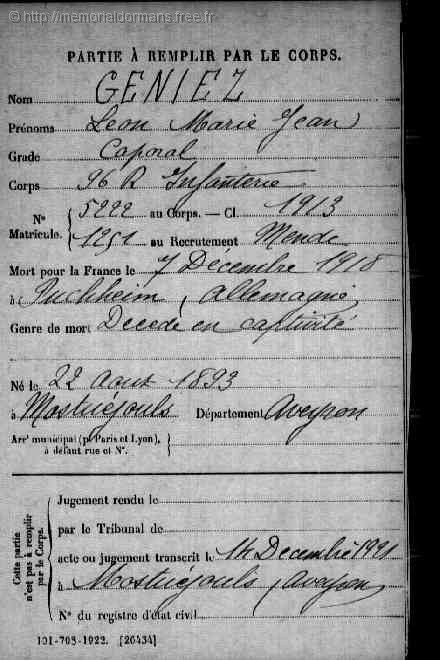 © http://memorialdormans.free.fr
PARTIE À REMPLIR PAR LE CORPS.
Nom GENIEZ
Prénoms Léon Marie Jean
Grade Caporal
Corps 96 R Infanterie
N° Matricule. { 5222 au Corps. — Cl. 1913
1251 au Recrutement Mende
Mort pour la France le 7 Decembre 1918
à Puchheim, Allemagne
Genre de mort Décédé en captivité
Né le 22 Aout 1893
à Mostuéjouls Département Aveyron
Arrt municipal (pr Paris et Lyon), }
à défaut rue et N°.
Cette partie n'est pas à remplir par le Corps.
Jugement rendu le
par le Tribunal de
acte ou jugement transcrit le 14 Decembre 1921
à Mostuéjouls, Aveyron
N° du registre d'état civil
101-708-1922. [26434]